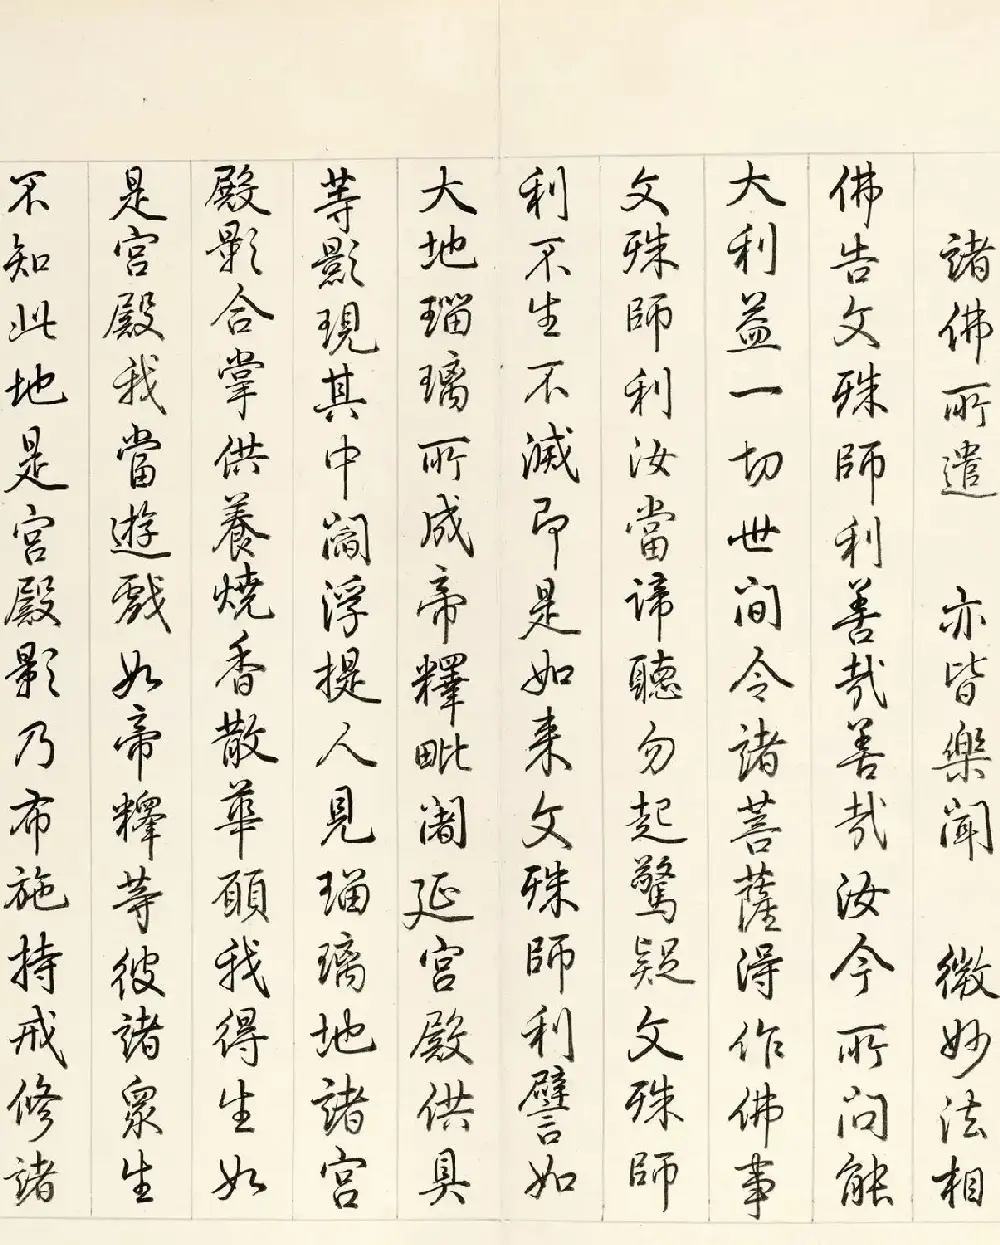 諸佛所遣　亦皆樂聞　微妙法相
佛告文殊師利善哉善哉汝今所問能
大利益一切世間令諸菩薩得作佛事
文殊師利汝當諦聽勿起驚疑文殊師
利不生不滅即是如來文殊師利譬如
大地瑠璃所成帝釋毗闍延宮殿供具
等影現其中閻浮提人見瑠璃地諸宮
殿影合掌供養燒香散華願我得生如
是宮殿我當遊戲如帝釋等彼諸衆生
不知此地是宮殿影乃布施持戒修諸